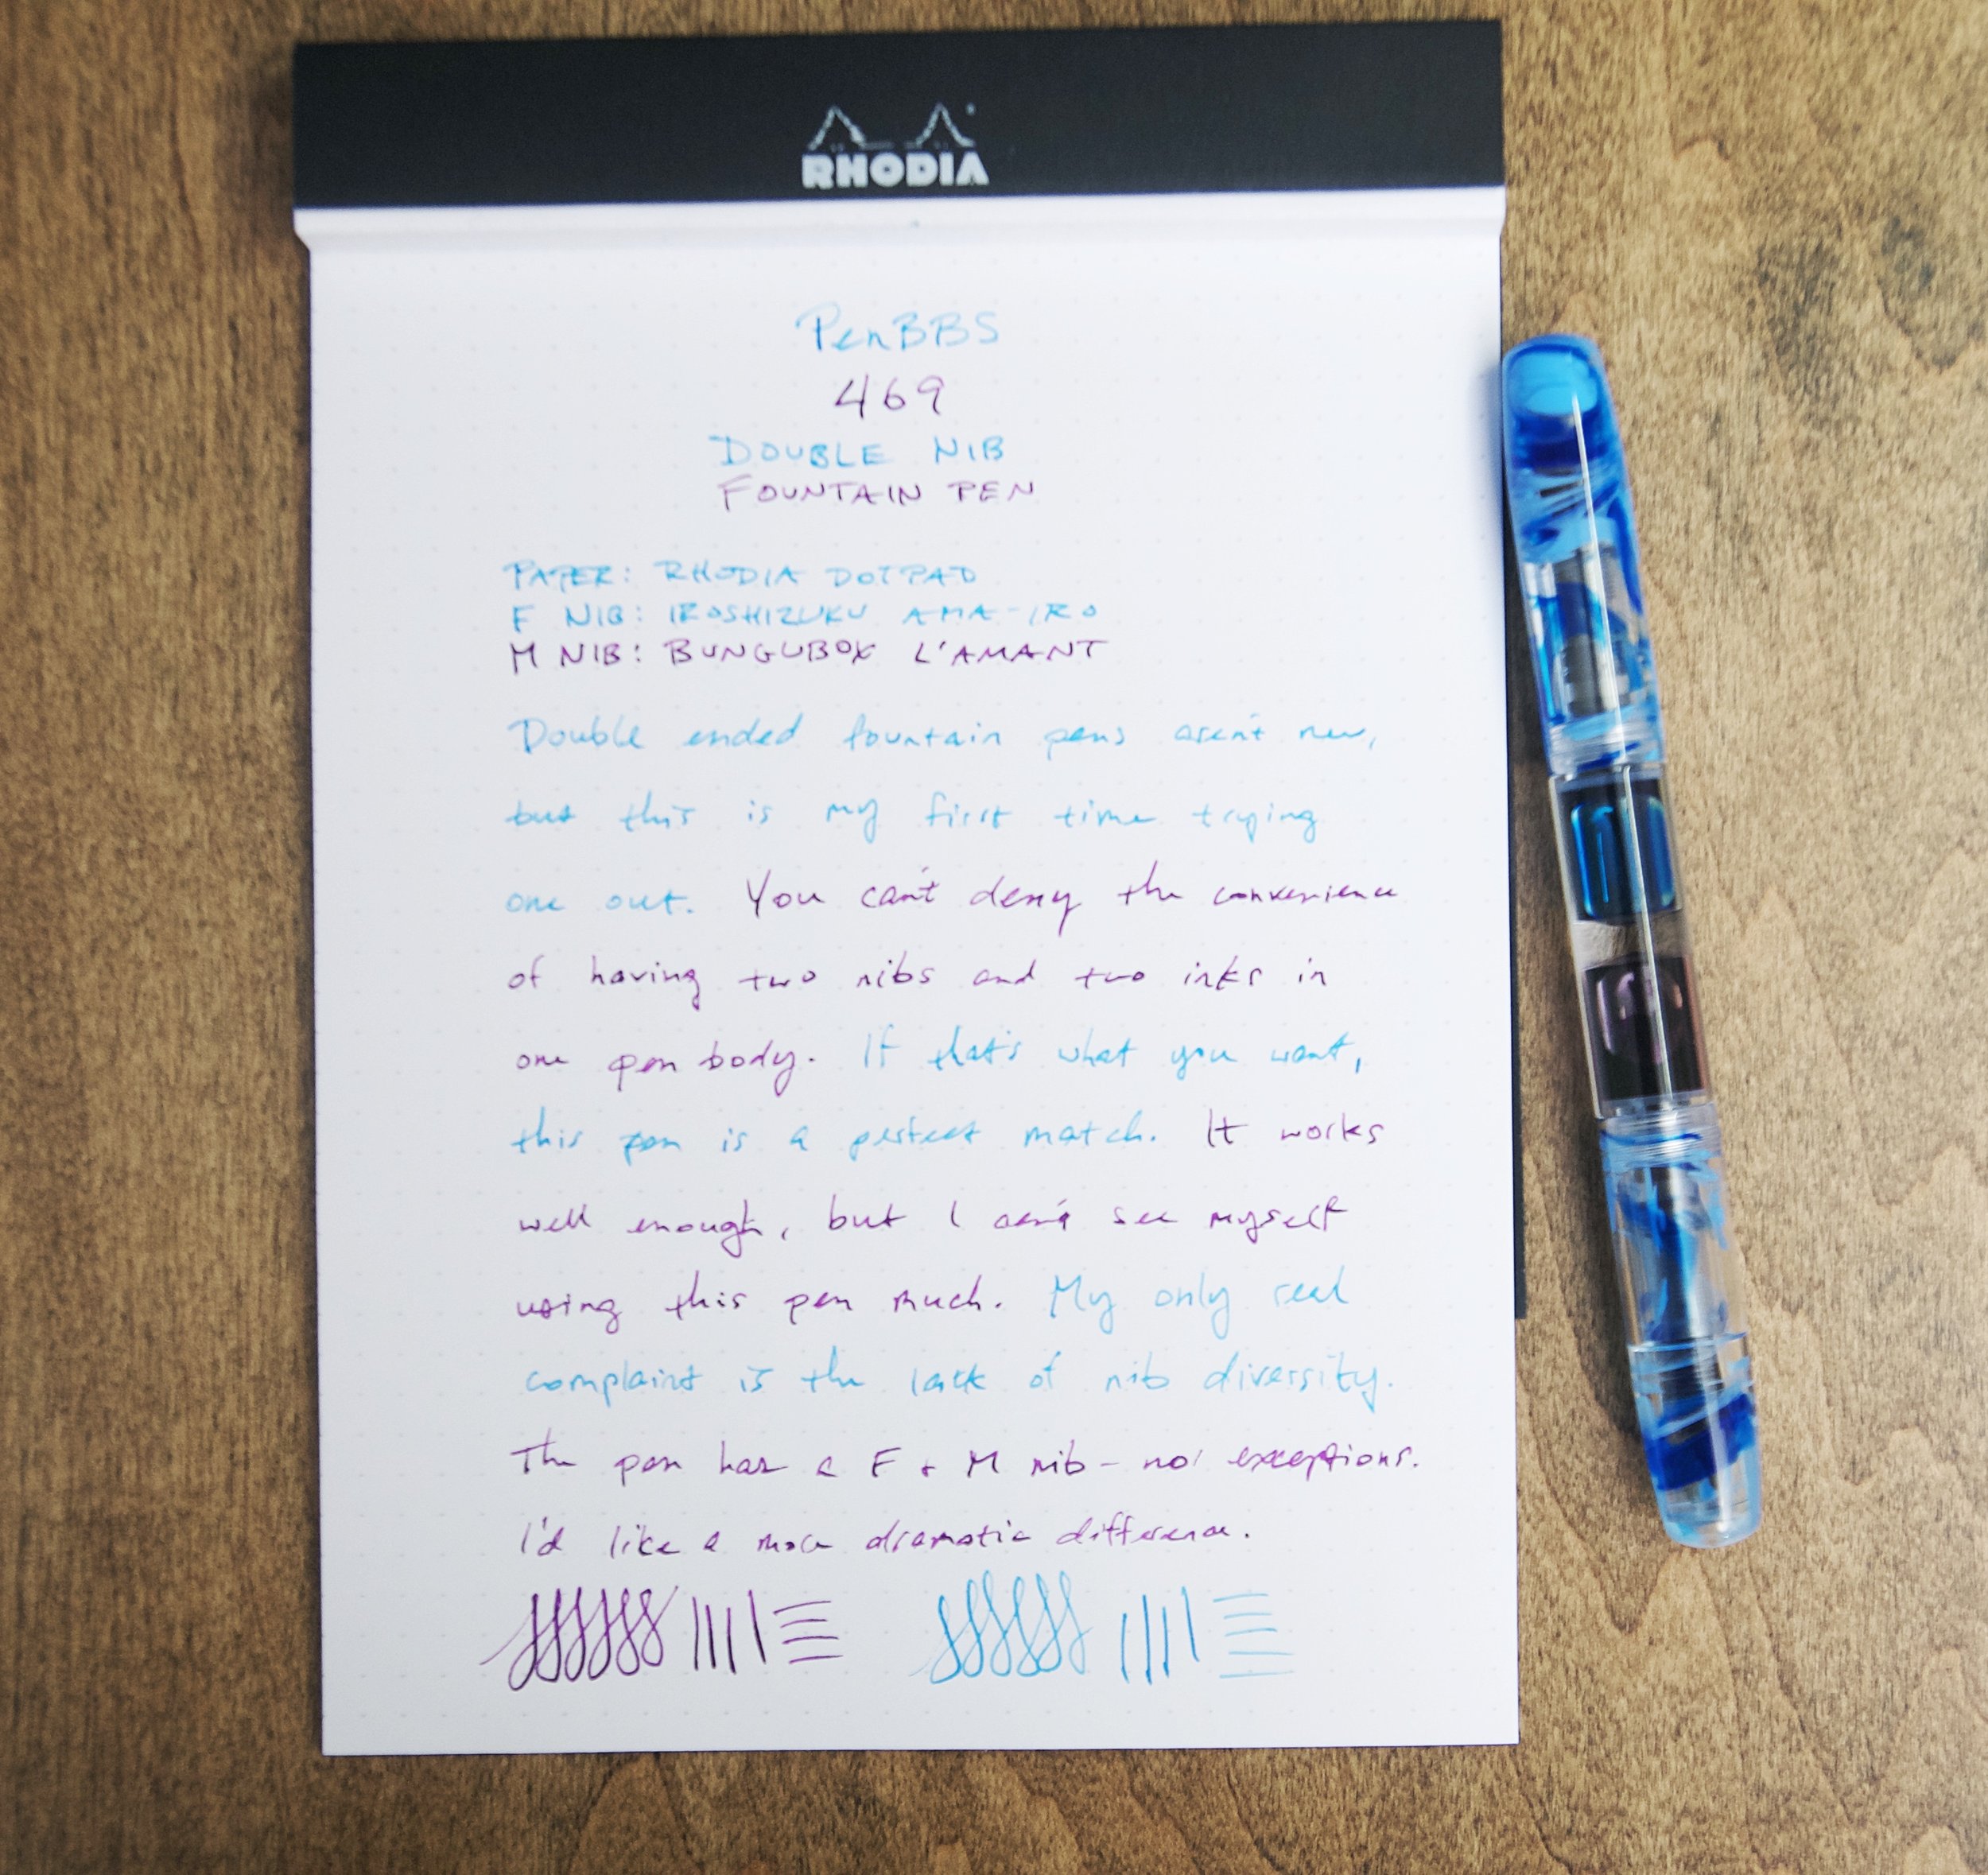 RHODIA
PenBBS
469
DOUBLE NIB
FOUNTAIN PEN
PAPER: RHODIA DOTPAD
F NIB: IROSHIZUKU AMA-IRO
M NIB: BUNGUBOX L'AMANT
Double ended fountain pens aren't new,
but this is my first time trying
one out. You can't deny the convenience
of having two nibs and two inks in
one pen body. If that's what you want,
this pen is a perfect match. It works
well enough, but I can't see myself
using this pen much. My only real
complaint is the lack of nib diversity.
The pen has a F + M nib - no exceptions.
I'd like a more dramatic difference.